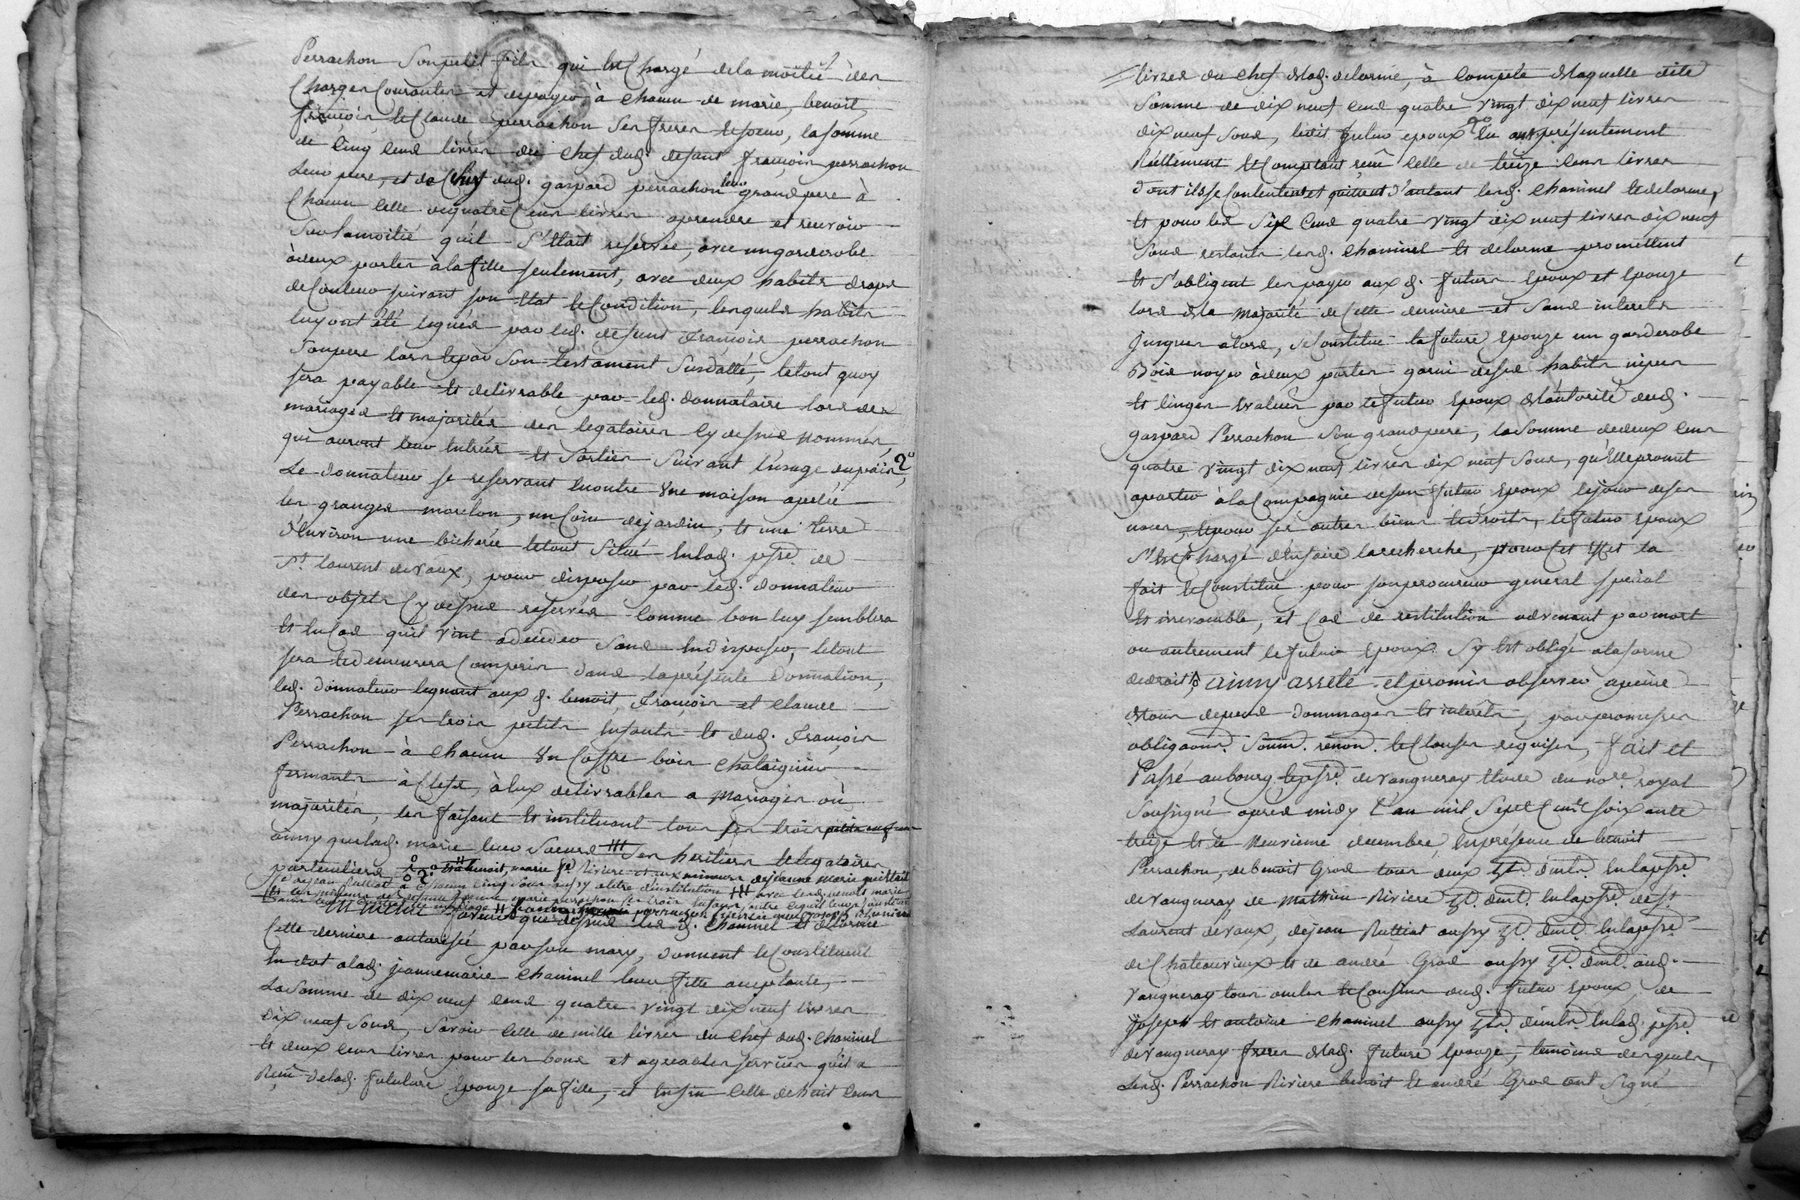 Perrachon Son petit fils qui est Chargé de la moitié des
Charges Courantes et de payer à chacun de marie, benoit,
françois et Claude perrachon Ses freres et soeur, la somme
de Cinq Cent livres du Chef dud. defunt françois perrachon
Leur pere, et de Chef dud. gaspard perrachon leur grand pere à
Chacun Celle de quatre Cent livres a prendre et recevoir
Sur la moitié qu'il S'étoit reservée, avec un garderobe
à deux portes à la fille seulement, avec deux habits drape
de Couleur suivant son Etat et Condition, lesquels habits
luy ont été legués par led. defunt François perrachon
Son pere lors et par Son testament Susdatté, le tout quoy
sera payable et delivrable par led. donnataire lors des
mariages et majorités des legataires Cy dessus nommés,
qui auront leur Entrées et Sorties Suivant l'usage du païs,
Le donnateur se reservant En outre une maison apelée
les granges marilon, un Coin de jardin, et une terre
d'Environ une bicherée le tout Situé En lad. psse. de
St. laurent de vaux, pour disposer par led. donnateur
des objets Cy dessus reservés Comme bon luy semblera
et En Cas qu'il vint a deceder Sans En disposer, le tout
sera et demeurera Compris dans la présente Donnation,
led. donnateur leguant aux d. benoit, François et claude
Perrachon ses trois petits Enfants et dud. François
Perrachon à chacun Un Coffre bois Chataignier
fermants à Clefs, à Eux delivrables a Mariages ou
majorités, les faisant et instituant tous ses trois petits enfans
ainsy que lad. marie leur Soeur Ses heritiers et legataires
particuliers
Cette derniere autorisée par son mary, donnent et Constituent
En dot a lad. jeanne marie Chaninel leur fille acceptante,
La Somme de dix neuf Cent quatre vingt dix neuf livres
Dix neuf Sous, Savoir Celle de mille livres du Chef dud. Chaninel
et deux Cent livres pour les bons et agreables services qu'il a
Reçu de lad. future Epouze sa fille, et Enfin Celle de huit Cent
livres du Chef de lad. delorme, à Compte de laquelle dite
Somme de dix neuf Cent quatre vingt dix neuf livres
dix neuf Sous, ledit futur epoux En a présentement
Réellement et Comptant reçu Celle de treize Cent livres
dont il se Contente et quitte d'autant lesd. Chaninel et delorme,
et pour les Six Cent quatre vingt dix neuf livres dix neuf
Sous restants lesd. Chaninel et delorme promettent
et s'obligent les payer aux d. futurs Epoux et Epouze
lors de la Majorité de Cette derniere et Sans interets
jusques alors, se Constitue la future Epouze un garderobe
Bois noyer à deux portes garni de ses habits nipes
et linges Evalués par le futur Epoux de l'autorité dud.
gaspard Perrachon Son grand pere, la Somme de deux Cent
quatre vingt dix neuf livres dix neuf Sous, qu'Elle promet
aporter à la Compagnie de son futur Epoux le jour de ses
noces, et pour ses autres biens et droits, le futur Epoux
s'est Chargé d'En faire la recherche, pour Cet Effet la
fait et Constitue pour son procureur general special
et irrevocable, et Cas de restitution advenant par mort
ou autrement le futur Epoux S'y Est obligé a la forme
de droit, ainsy arreté et promis observer a peine
de tous depens dommages et interets, par promesses
obligaons. Soum. renon. et Clauses requises, fait et
Passé au bourg et psse. de vaugneray Etude du nore. royal
Soussigné apres midy l'an mil Sept Cent soixante
treize et le Neuvieme decembre, En présence de benoit
Perrachon, de benoit Gros tous deux
de vaugneray de Mathieu Riviere
Laurent de vaux, de jean
de Chateauvieux et de andré Gros aussy
vaugneray tous oncles et Cousins dud. futur Epoux, de
joseph et antoine Chaninel aussy
de vaugneray freres de lad. future Epouze, temoins desquels,
Lesd. Perrachon Riviere benoit et andré Gros ont Signé